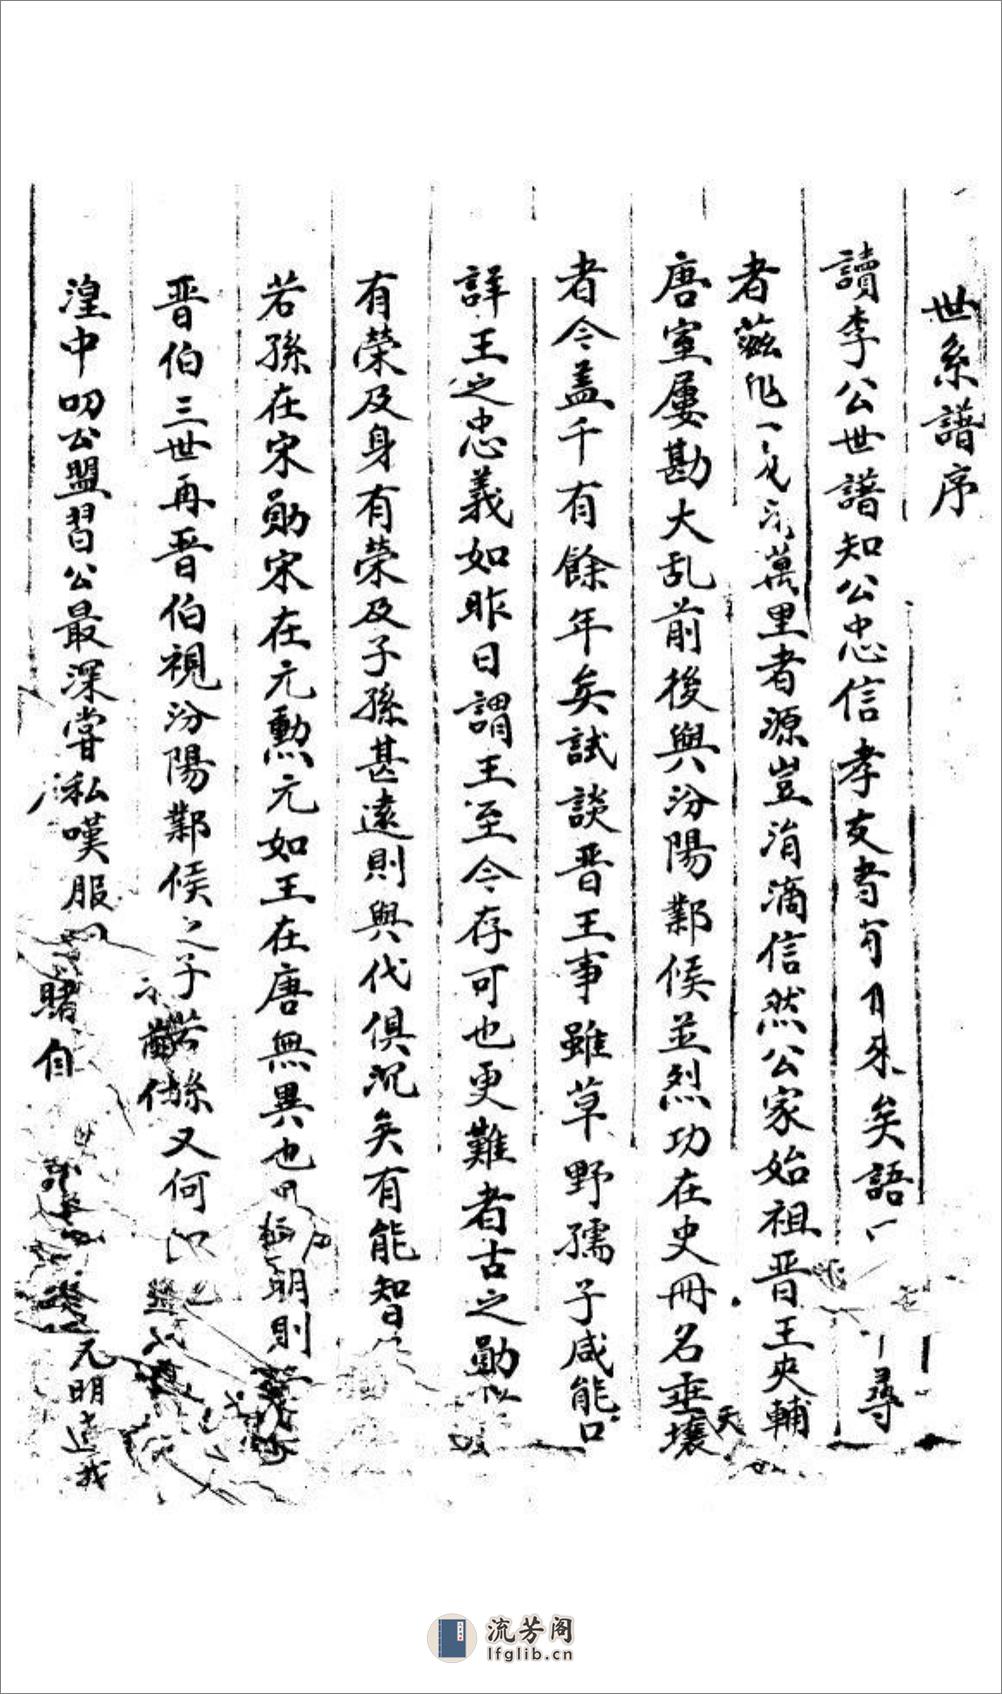 世系譜序
讀李公世譜知公忠信孝友者有自來矣語尋
者茲萬里者源豈涓滴信然公家始祖晋王夾輔
唐室屢勘大乱前後與汾陽鄴候並烈功在史冊名垂天壤
者今盖千有餘年矣試談晋王事雖草野孺子咸能口
詳王之忠義如昨日謂王至今存可也更難者古之勛
有榮及身有榮及子孫甚遠則與代俱沉矣有能智
若孫在宋勛宋在元勲元如王在唐無異也明則
晋伯三世再晋伯視汾陽鄴候之子若孫又何
湟中叨公盟習公最深嘗私嘆服睹自元明
流芳阁
lfglib.cn